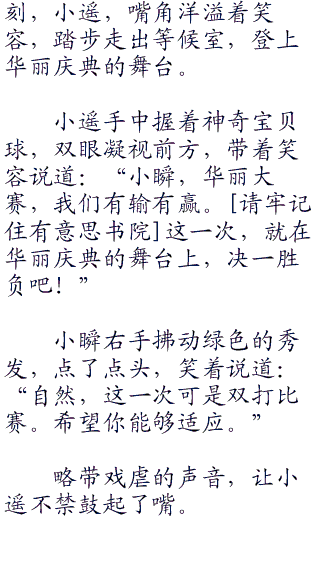 刻，小遥，嘴角洋溢着笑
容，踏步走出等候室，登上
华丽庆典的舞台。
小遥手中握着神奇宝贝
球，双眼凝视前方，带着笑
容说道：“小瞬，华丽大
赛，我们有输有赢。[请牢记
住有意思书院]这一次，就在
华丽庆典的舞台上，决一胜
负吧！”
小瞬右手拂动绿色的秀
发，点了点头，笑着说道：
“自然，这一次可是双打比
赛。希望你能够适应。”
略带戏虐的声音，让小
遥不禁鼓起了嘴。